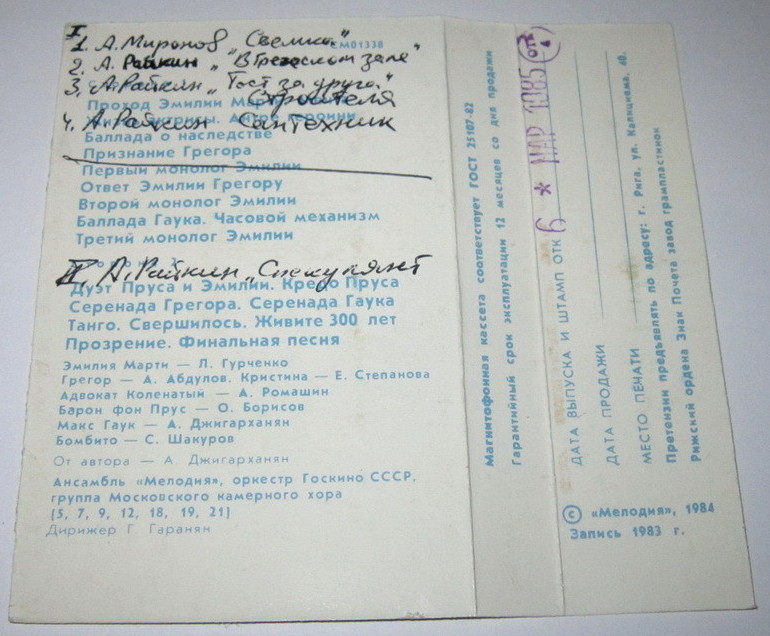 I
1. А. Миронов „Свемка"
СМ01338
2. А. Райкин „В греческом зале"
3. А. Райкин „Тост за друга"
Строителя
Проход Эмилии Марти
4. А. Райкин Сантехник
Баллада о наследстве
Признание Грегора
Первый монолог Эмилии
Ответ Эмилии Грегору
Второй монолог Эмилии
Баллада Гаука. Часовой механизм
Третий монолог Эмилии
II. А. Райкин „Спекулянт
Дуэт Пруса и Эмилии. Кредо Пруса
Серенада Грегора. Серенада Гаука
Танго. Свершилось. Живите 300 лет
Прозрение. Финальная песня
Эмилия Марти — Л. Гурченко
Грегор — А. Абдулов. Кристина — Е. Степанова
Адвокат Коленатый — А. Ромашин
Барон фон Прус — О. Борисов
Макс Гаук — А. Джигарханян
Бомбито — С. Шакуров
От автора — А. Джигарханян
Ансамбль «Мелодия», оркестр Госкино СССР,
группа Московского камерного хора
(5, 7, 9, 12, 18, 19, 21)
Дирижер Г. Гаранян
Магнитофонная кассета соответствует ГОСТ 25107-82
Гарантийный срок эксплуатации 12 месяцев со дня продажи
ДАТА ВЫПУСКА И ШТАМП ОТК 6 * МАР 1985 ОТК 4
ДАТА ПРОДАЖИ
МЕСТО ПЕЧАТИ
Претензии предъявлять по адресу: г. Рига, ул. Калнциема, 40.
Рижский ордена Знак Почета завод грампластинок
© «Мелодия», 1984
Запись 1983 г.